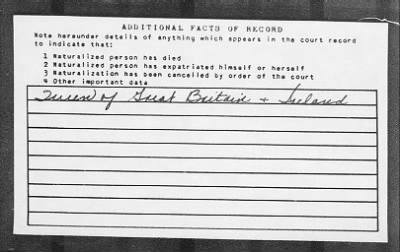 ADDITIONAL FACTS OF RECORD
Note hereunder details of anything which appears in the court record
to indicate that:
1 Naturalized person has died
2 Naturalized person has expatriated himself or herself
3 Naturalization has been cancelled by order of the court
4 Other important data
Queen of Great Britain + Ireland